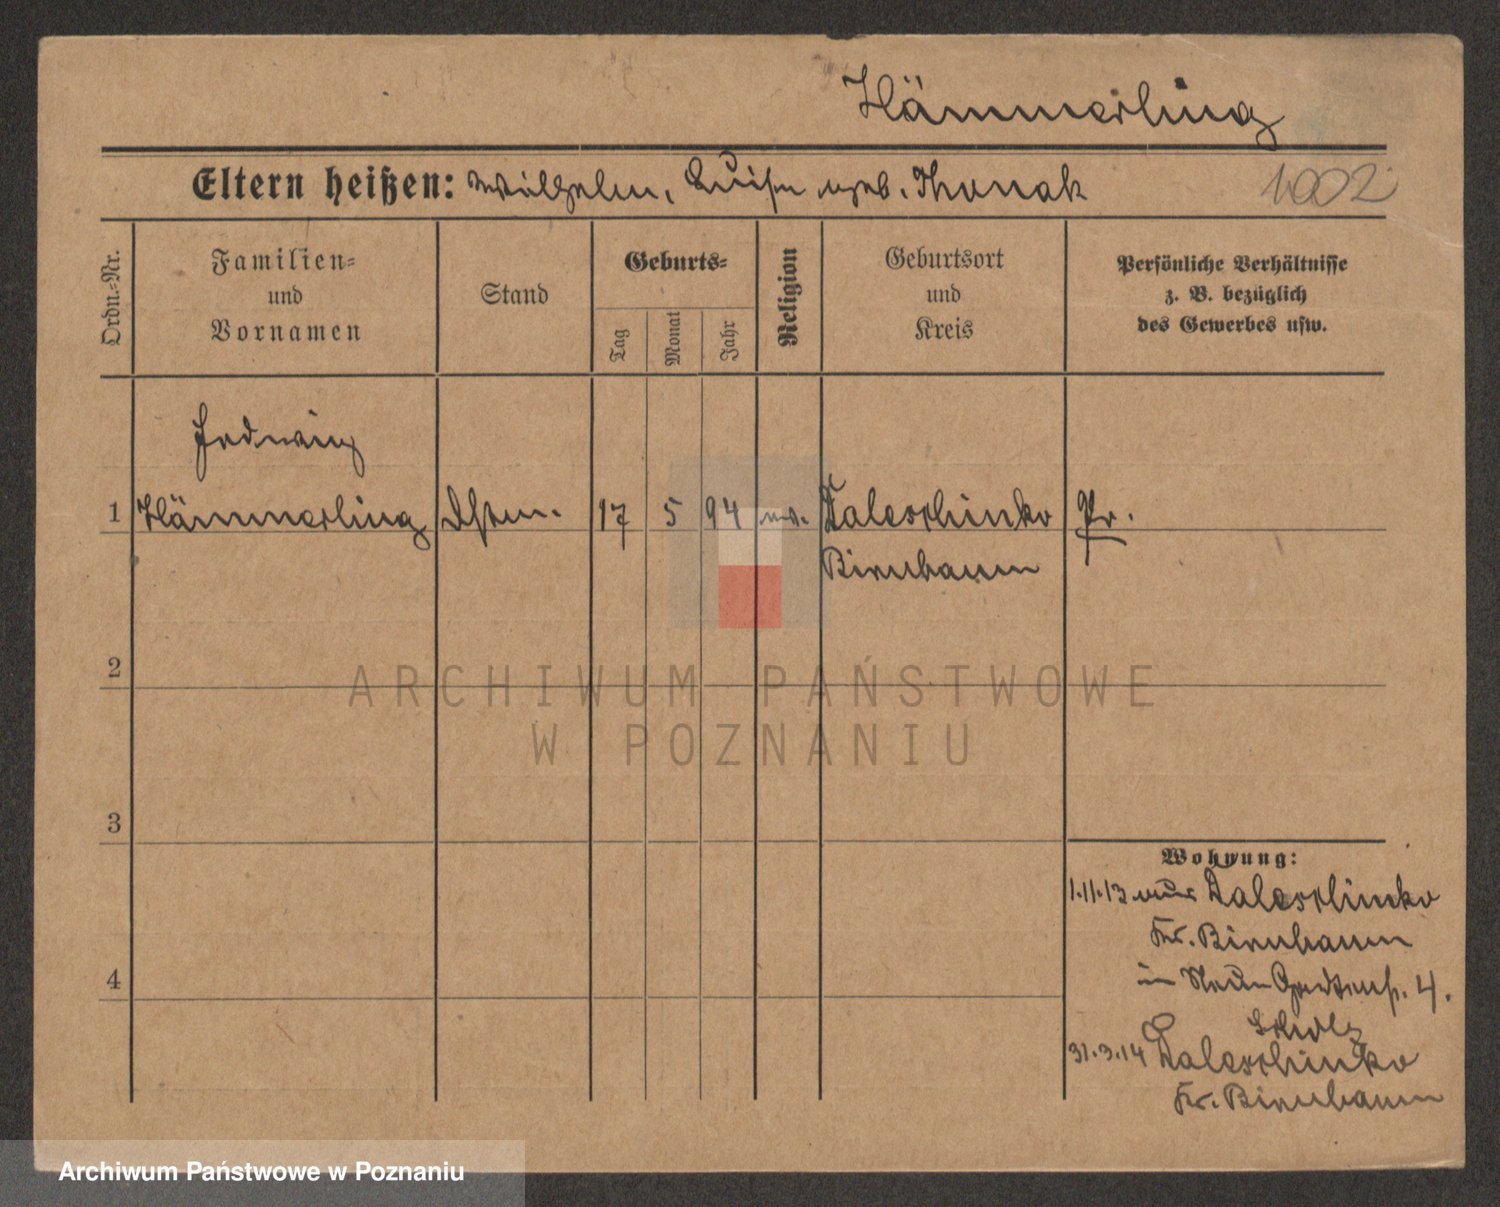 Hämmerling
Eltern heißen: Wilhelm, Luise geb. Thonak
1002
Ordn.-Nr.
Familien-
und
Vornamen
Stand
Geburts-
Tag
Monat
Jahr
Religion
Geburtsort
und
Kreis
Persönliche Verhältnisse
z. B. bezüglich
des Gewerbes usw.
Hedwig
1 Hämmerling 17 5 94 ev. Zaleschinko Pr.
Birnbaum
2
ARCHIWUM PAŃSTWOWE
W POZNANIU
3
Wohnung:
1.11.13 aus Zaleschinko
Kr. Birnbaum
4
in Neue Gartenstr. 4.
Scholz
31.3.14 Zaleschinko
Kr. Birnbaum
Archiwum Państwowe w Poznaniu